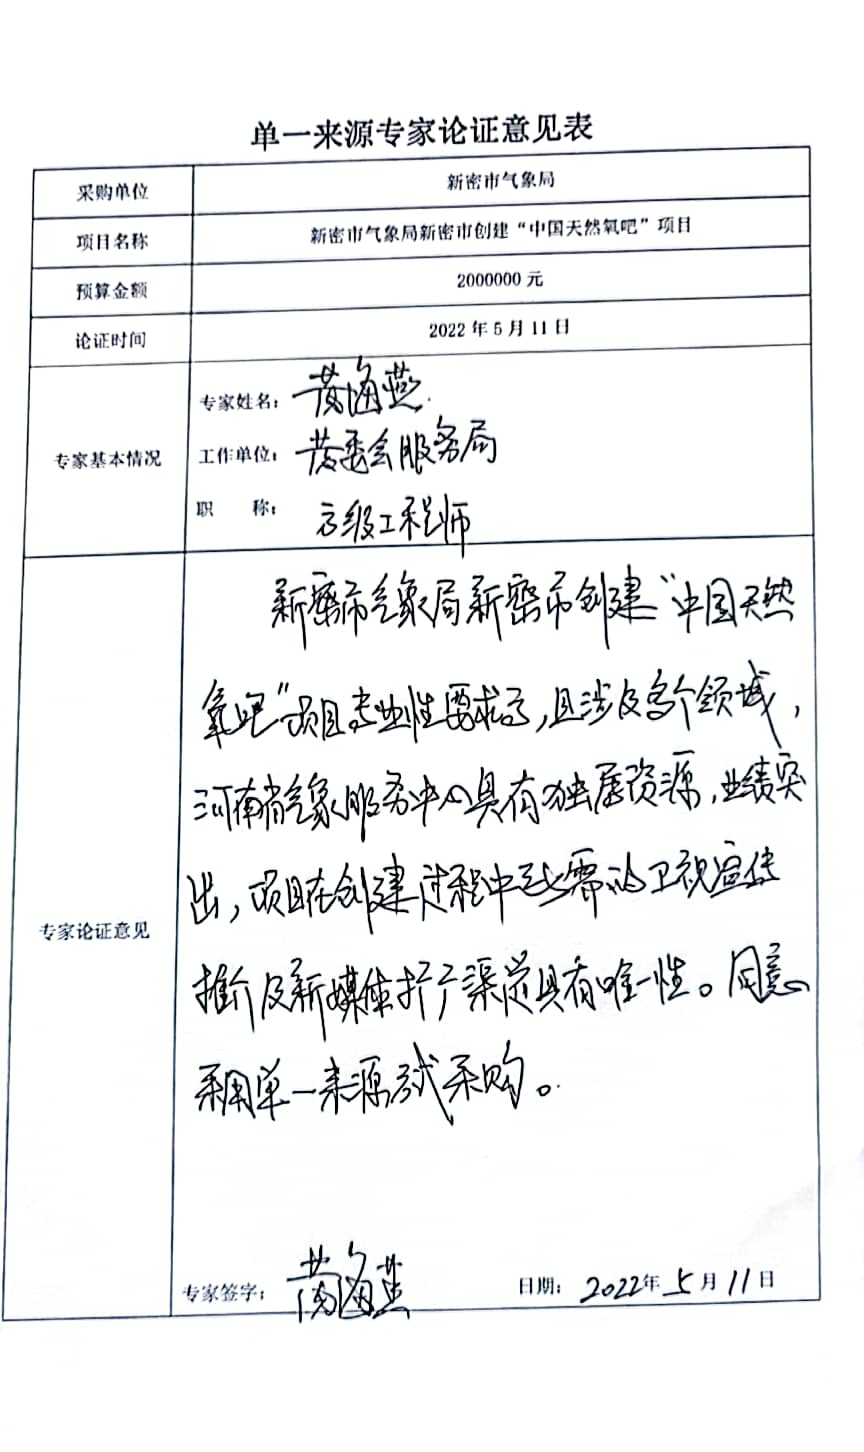 单一来源专家论证意见表
采购单位 新密市气象局
项目名称 新密市气象局新密市创建“中国天然氧吧”项目
预算金额 2000000 元
论证时间 2022 年 5 月 11 日
专家基本情况
专家姓名: 黄海燕
工作单位: 黄委会服务局
职 称: 高级工程师
专家论证意见
新密市气象局新密市创建“中国天然
氧吧”项目专业性要求高,且涉及多个领域,
河南省气象服务中心具有独属资源,业绩突
出,项目在创建过程中所需的卫视宣传
推介及新媒体推广渠道具有唯一性。同意
采用单一来源方式采购。
专家签字: 黄海燕 日期: 2022年 5 月 11 日